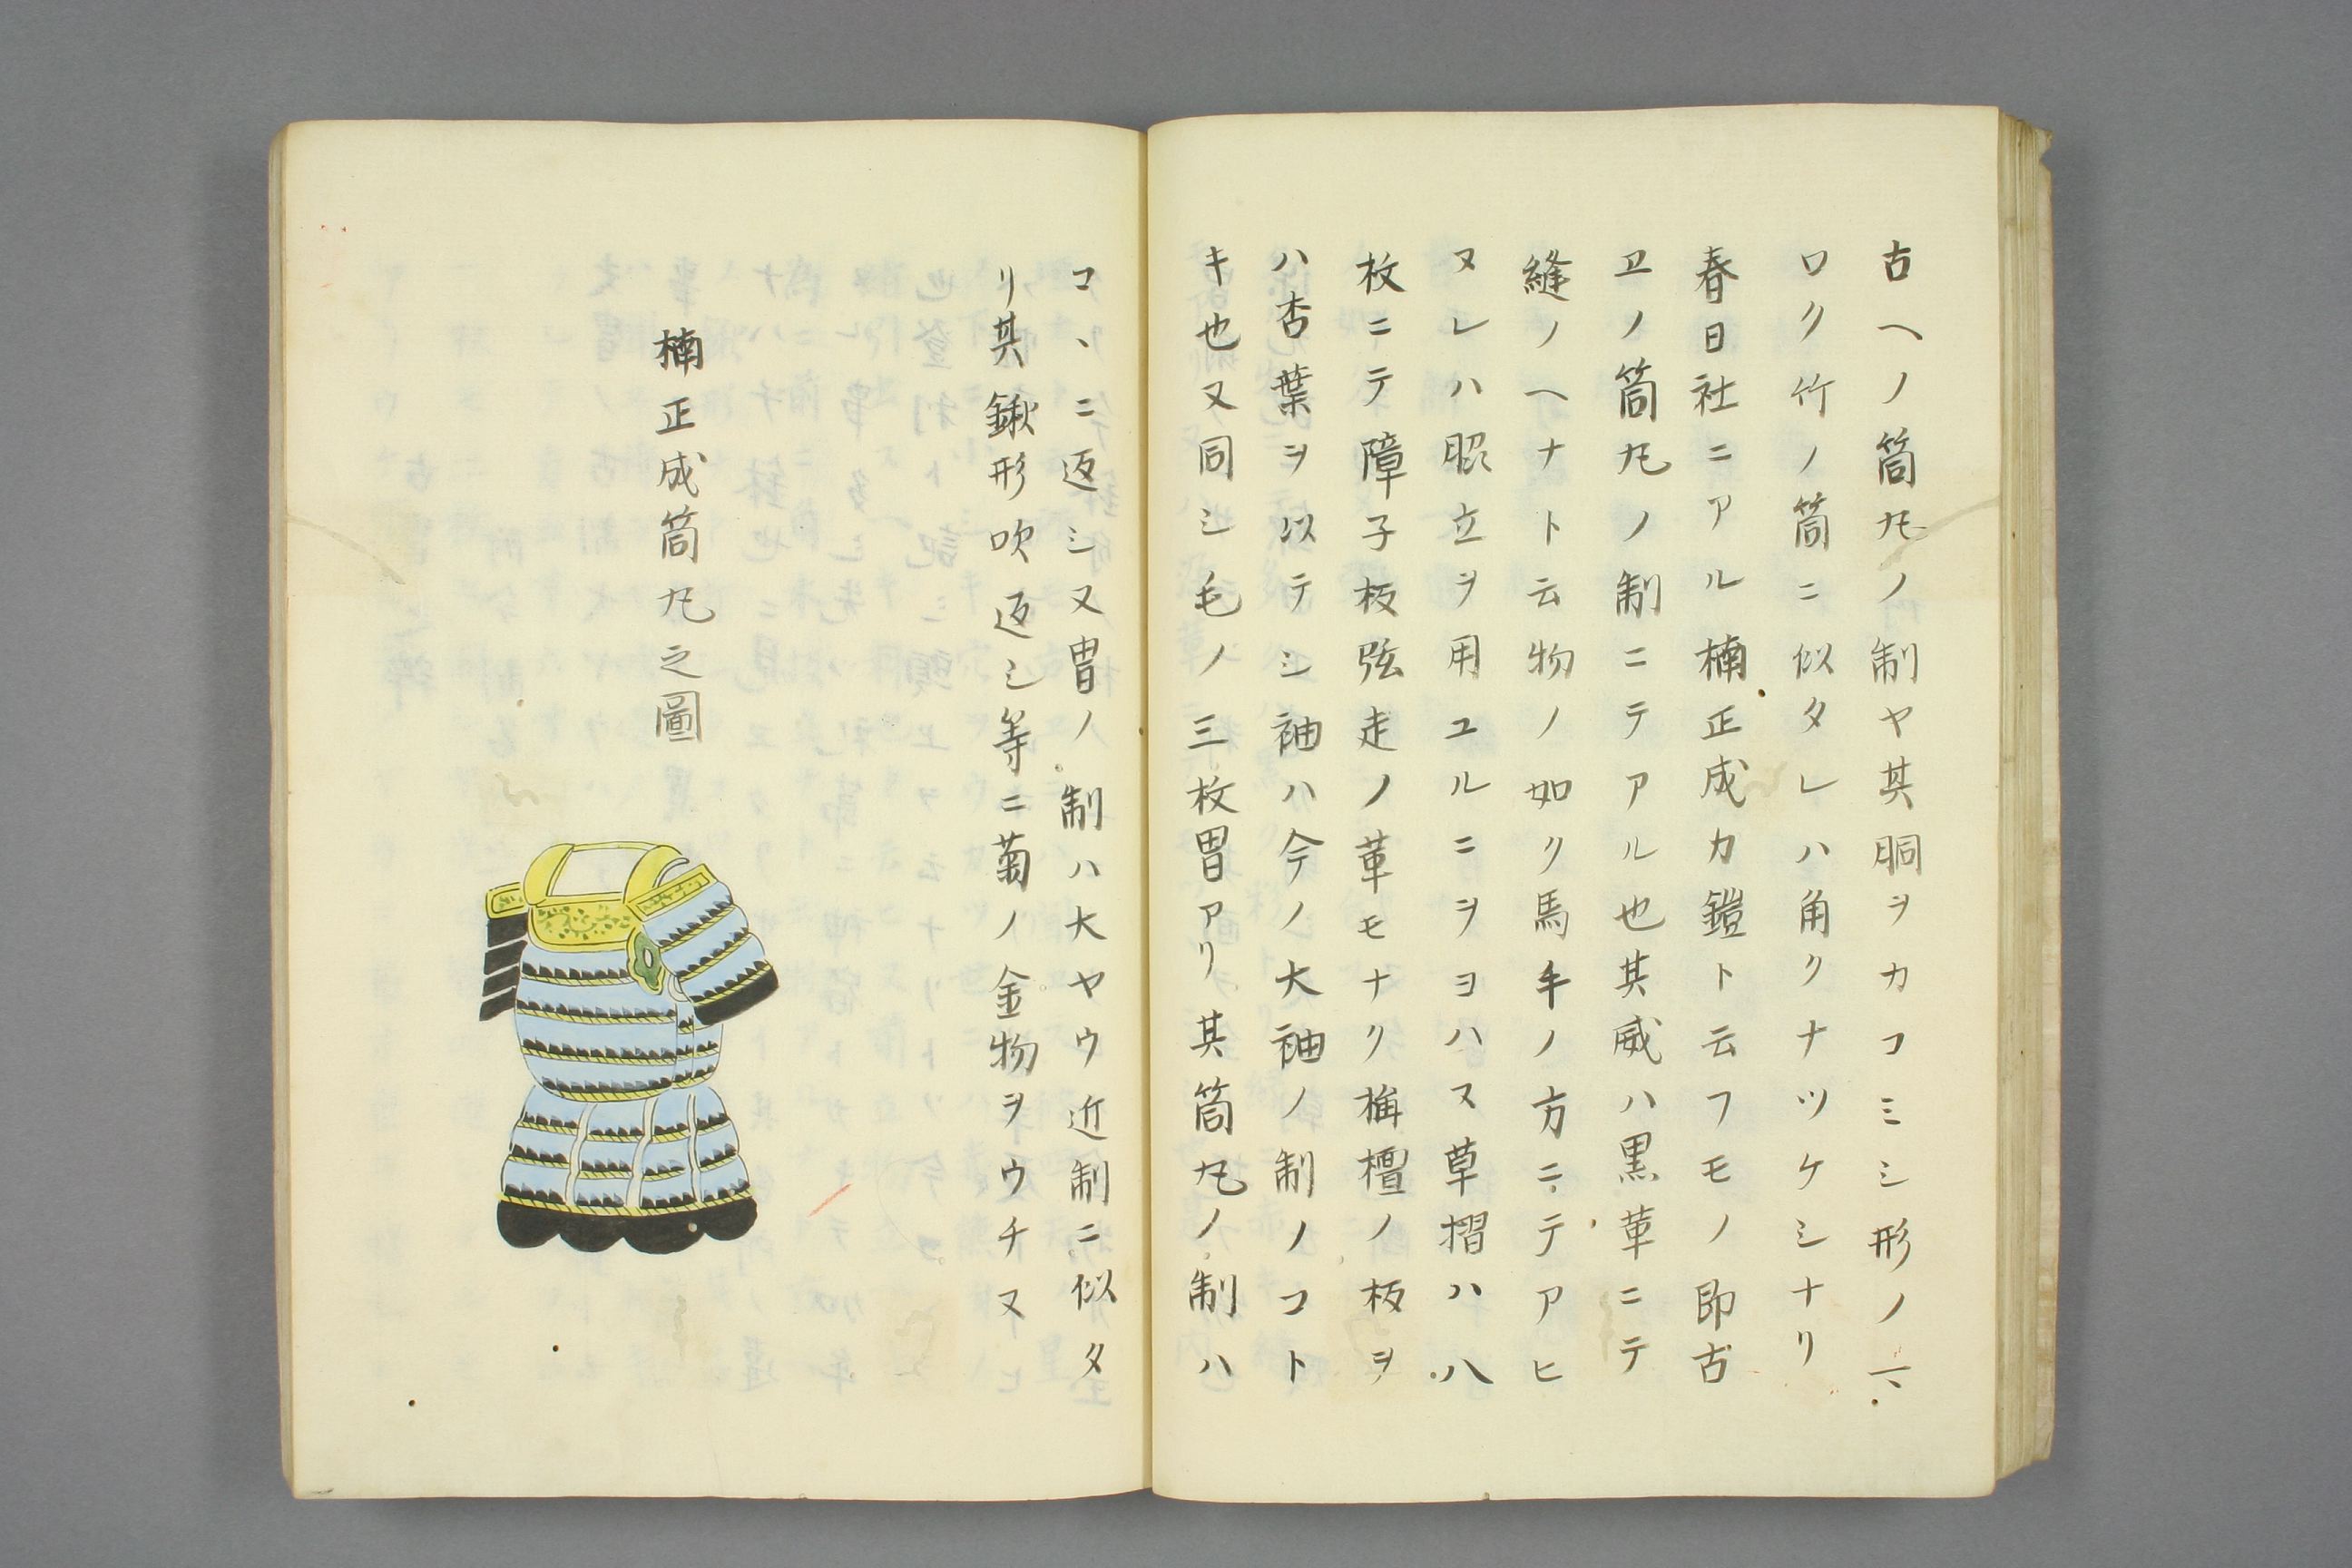 古ヘノ筒丸ノ制ヤ其胴ヲカコミシ形ノ六
ロク竹ノ筒ニ似タレハ角クナツケシナリ
春日社ニアル楠正成カ鎧ト云フモノ即古
ヱノ筒丸ノ制ニテアル也其威ハ黒革ニテ
縫ノヘナト云物ノ如ク馬手ノ方ニテアヒ
ヌレハ脇立ヲ用ユルニヲヨハス草摺ハ八
枚ニテ障子板弦走ノ革モナク栴檀ノ板ヲ
ハ杏葉ヲ以テシ袖ハ今ノ大袖ノ制ノコト
キ也又同シ毛ノ三枚冑アリ其筒丸ノ制ハ
コヽニ返シ又冑ノ制ハ大ヤウ近制ニ似タ
リ其鍬形吹返シ等ニ菊ノ金物ヲウチヌ
楠正成筒丸之圖